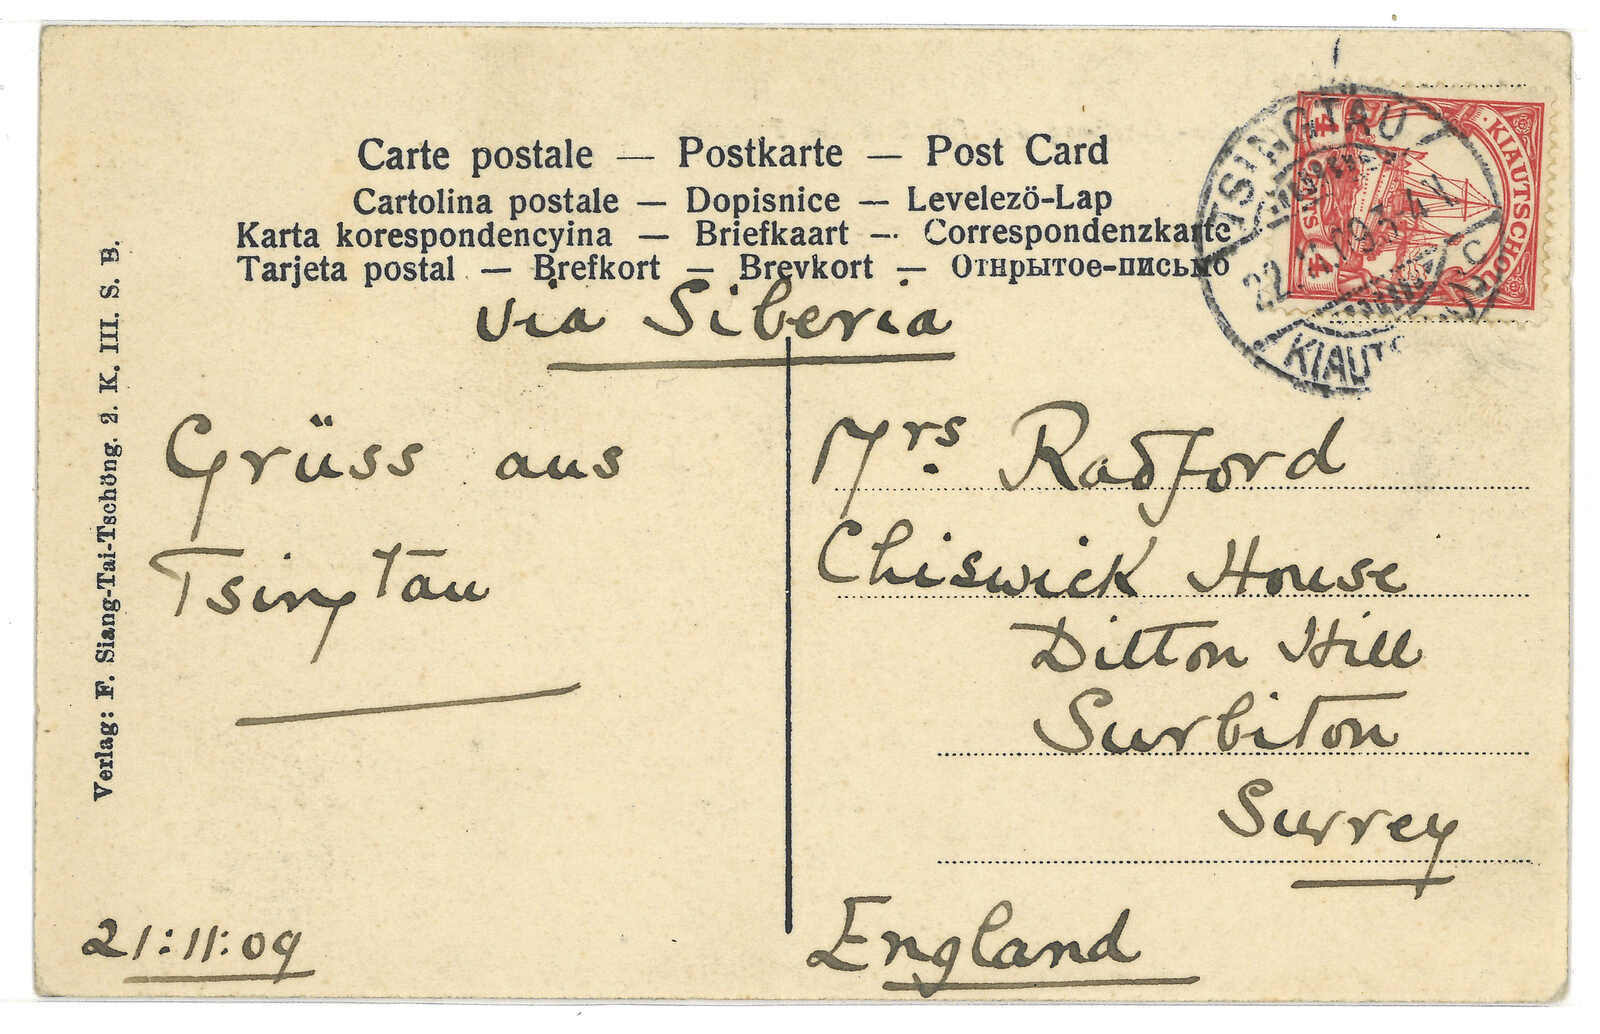 Carte postale — Postkarte — Post Card
Cartolina postale — Dopisnice — Levelezö-Lap
Karta korespondencyina — Briefkaart — Correspondenzkarte
Tarjeta postal — Brefkort — Brevkort — Открытое-письмо
via Siberia
Grüss aus
Tsingtau
21:11:09
Mrs Radford
Chiswick House
Ditton Hill
Surbiton
Surrey
England
Verlag: F. Siang-Tai-Tschöng. 2. K. III. S. B.
KIAUTSCHOU
4 4
TSINGTAU
22.11.09.3-4
KIAUTSC